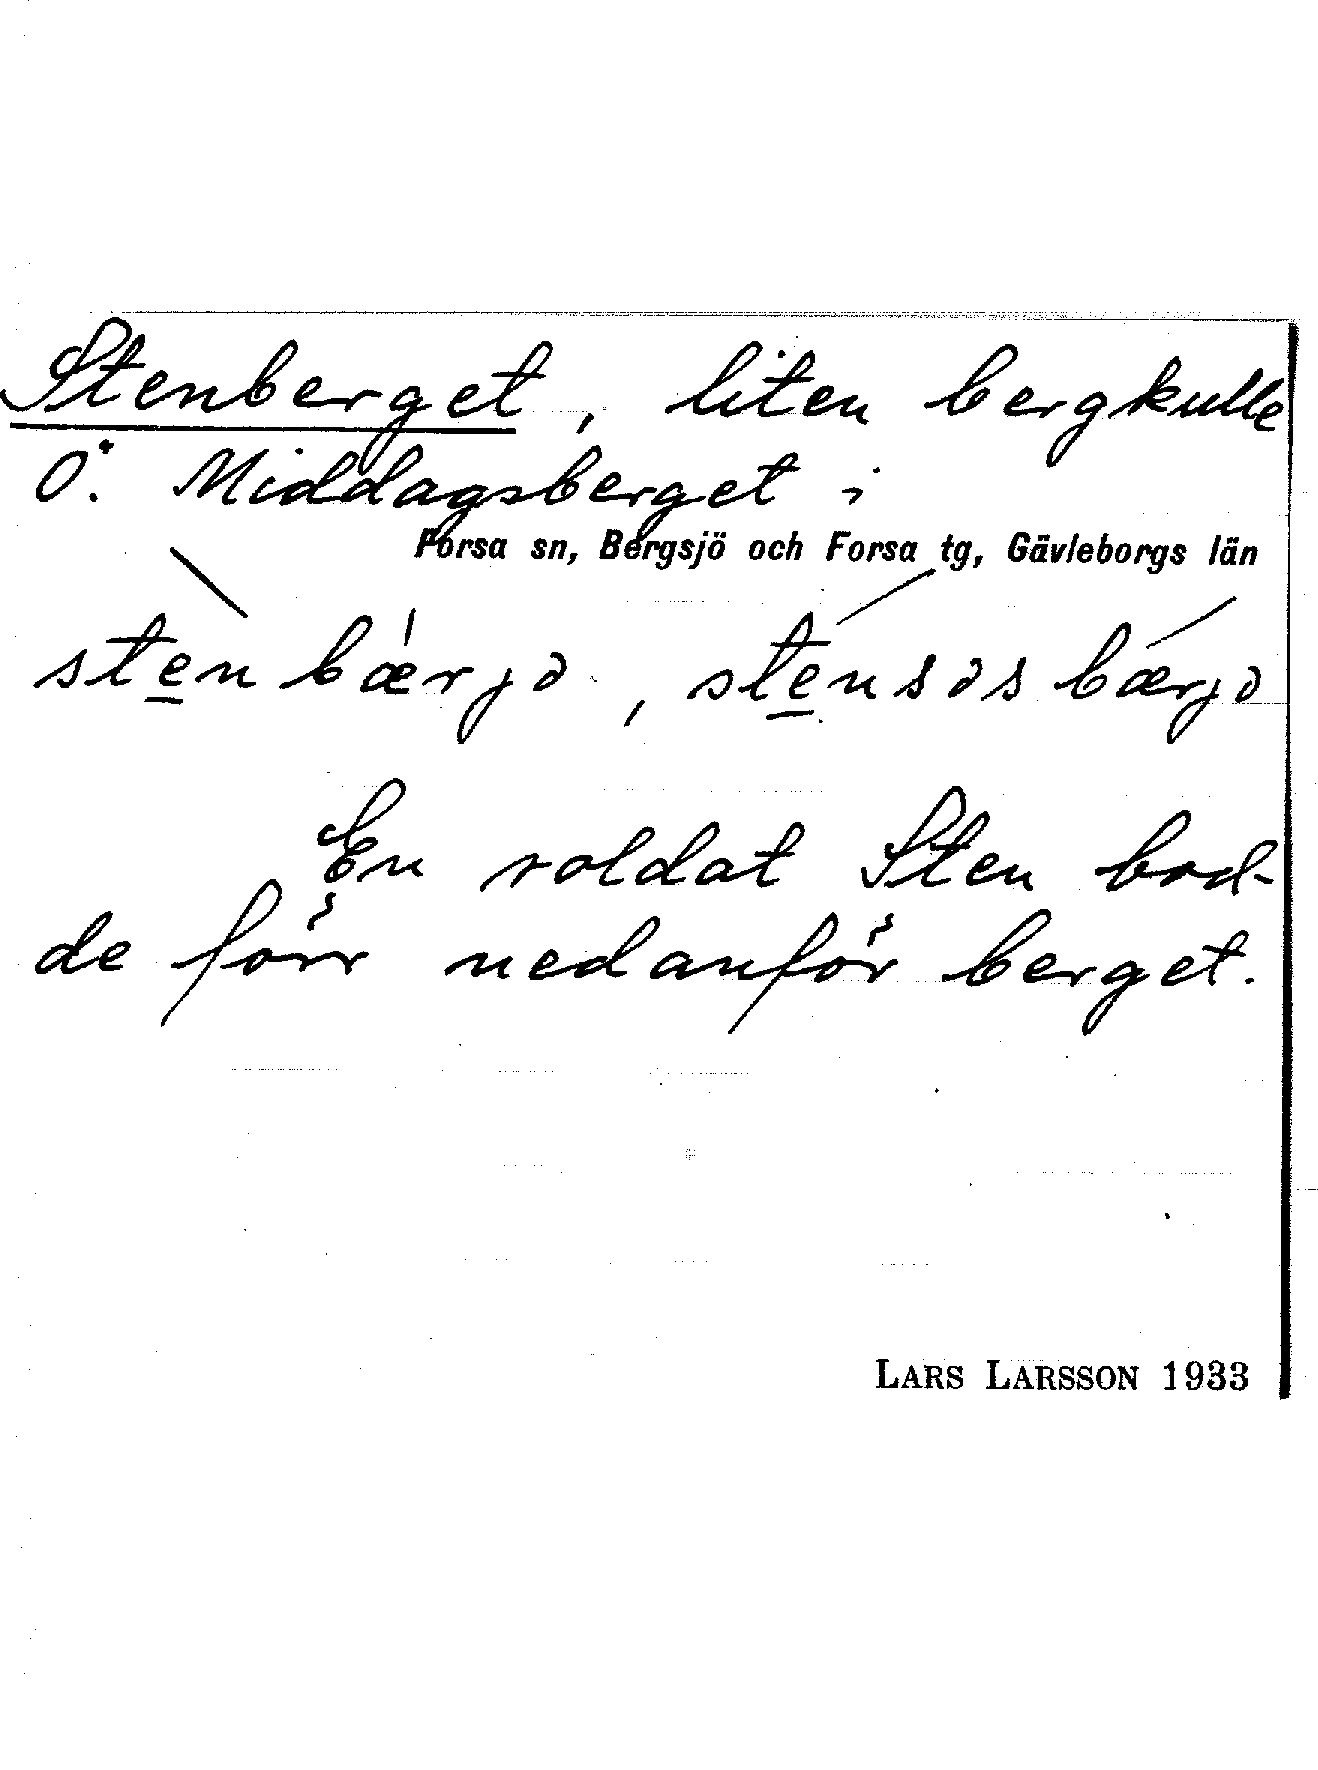 Stenberget, liten bergkulle
Ö. Middagsberget i
Forsa sn, Bergsjö och Forsa tg, Gävleborgs län
ste̲nbærjə, ste̲nsəsbærjə
En soldat Sten bod-
de förr nedanför berget.
LARS LARSSON 1933